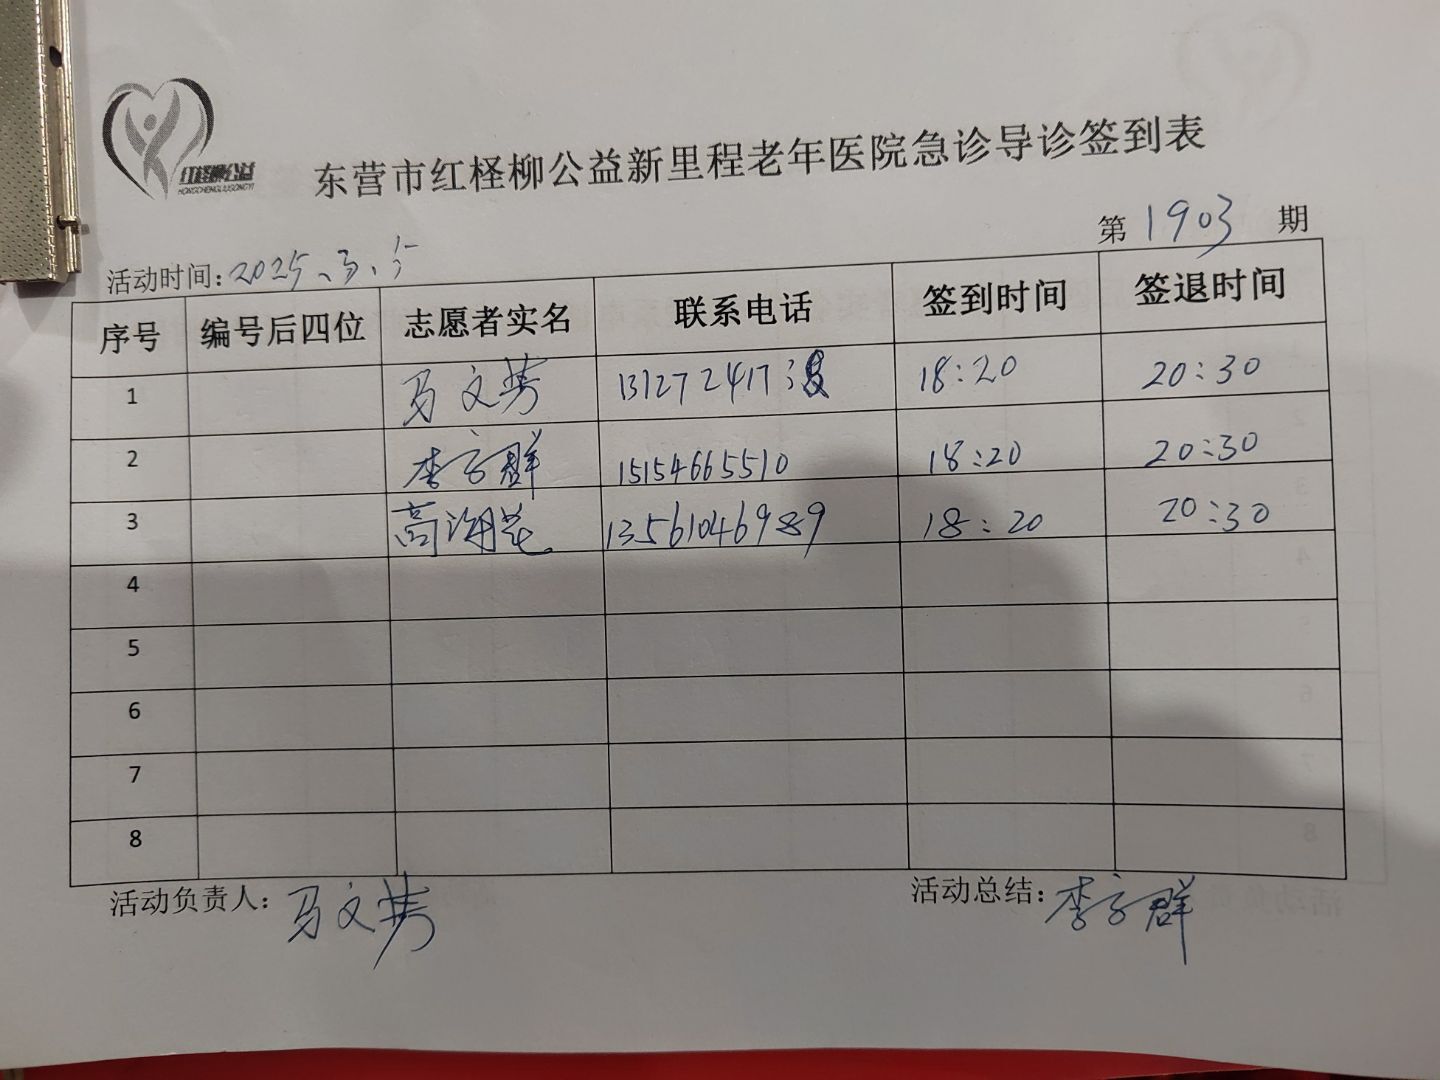 红柽柳公益
HONGCHENGLIUGONGYI
东营市红柽柳公益新里程老年医院急诊导诊签到表
第 1903 期
活动时间:2025.3.5
序号 编号后四位 志愿者实名 联系电话 签到时间 签退时间
1 马文 1312724173 18:20 20:30
2 李子群 15154665510 18:20 20:30
3 高海花 13561046989 18:20 20:30
4
5
6
7
8
活动负责人: 马文
活动总结: 李子群